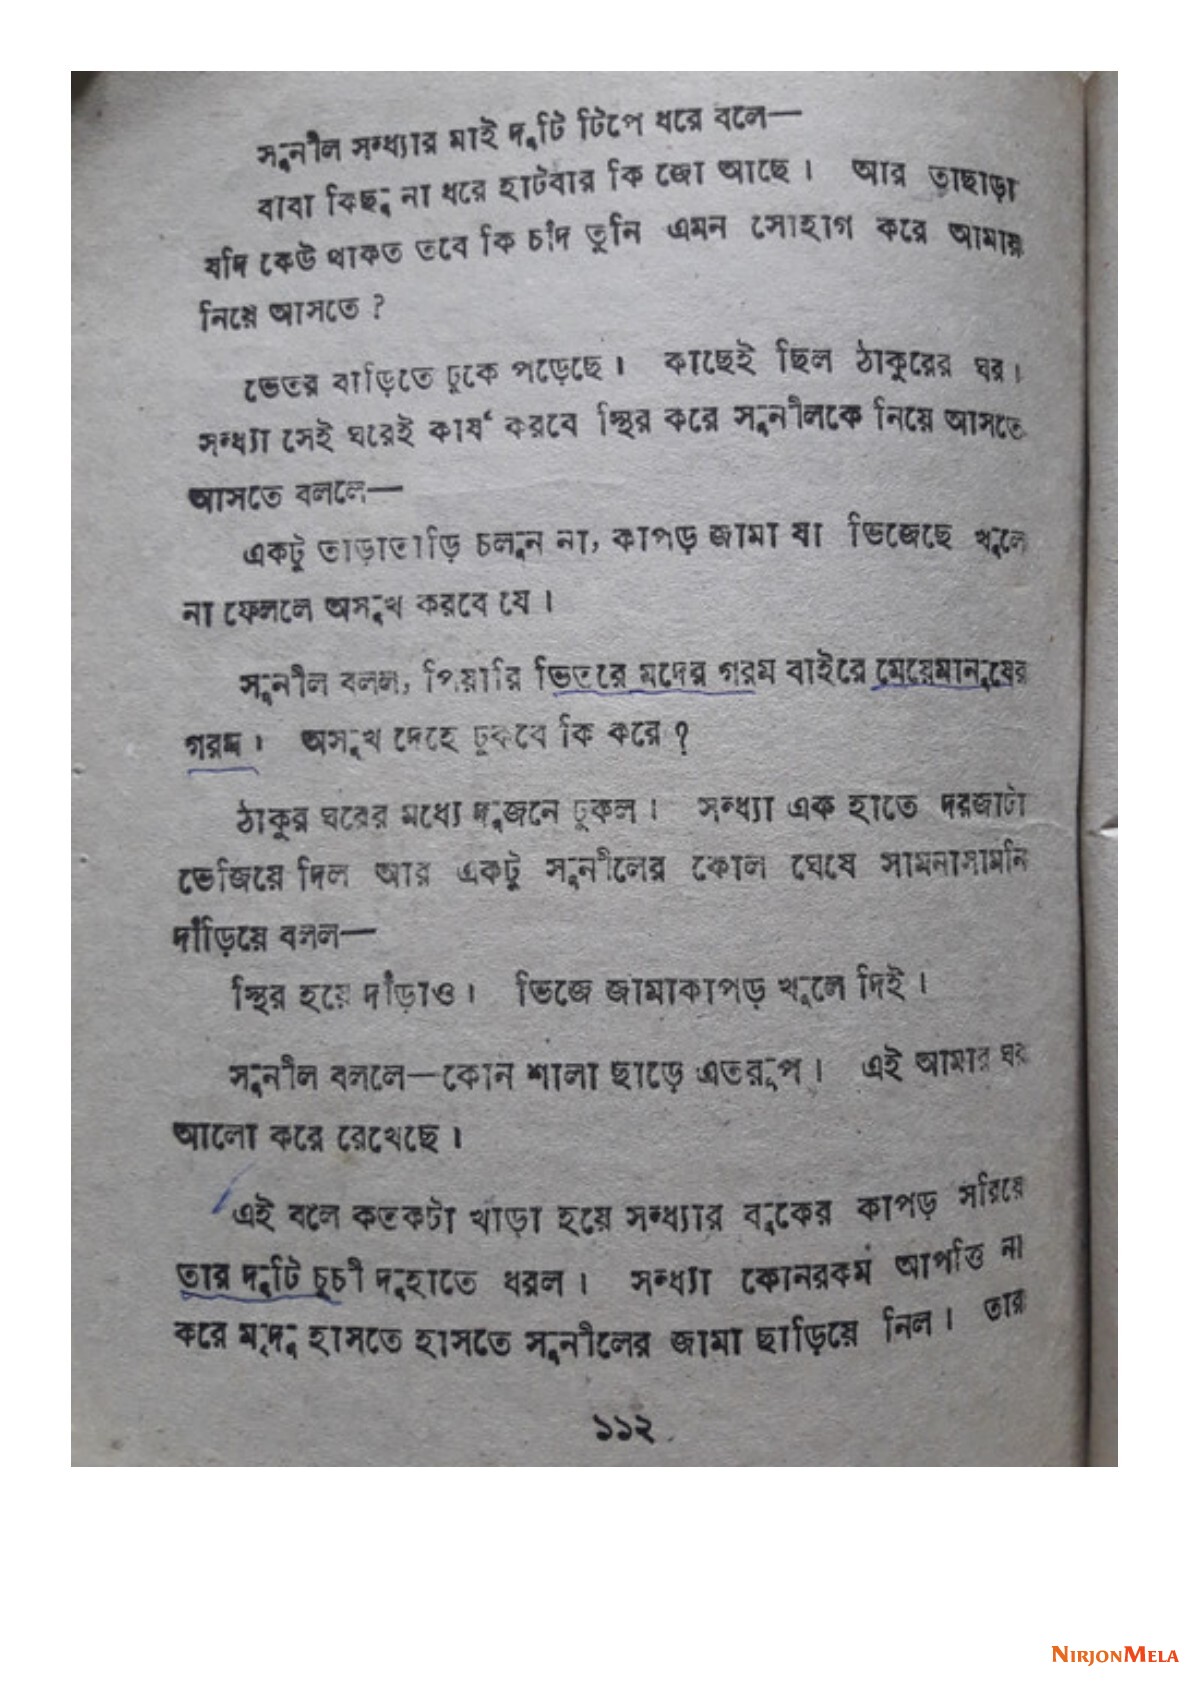 সুনীল সন্ধ্যার মাই দুটি টিপে ধরে বলে—
বাবা কিছু না ধরে হাটবার কি জো আছে। আর তাছাড়া
যদি কেউ থাকত তবে কি চাঁদ তুনি এমন সোহাগ করে আমায়
নিয়ে আসতে ?
ভেতর বাড়িতে ঢুকে পড়েছে। কাছেই ছিল ঠাকুরের ঘর।
সন্ধ্যা সেই ঘরেই কার্য করবে স্থির করে সুনীলকে নিয়ে আসতে
আসতে বললে—
একটু তাড়াতাড়ি চলুন না, কাপড় জামা যা ভিজেছে খুলে
না ফেললে অসুখ করবে যে।
সুনীল বলল, পিয়ারি ভিতরে মদের গরম বাইরে মেয়েমানুষের
গরম। অসুখ দেহে ঢুকবে কি করে ?
ঠাকুর ঘরের মধ্যে দুজনে ঢুকল। সন্ধ্যা এক হাতে দরজাটা
ভেজিয়ে দিল আর একটু সুনীলের কোল ঘেষে সামনাসামনি
দাঁড়িয়ে বলল—
স্থির হয়ে দাঁড়াও। ভিজে জামাকাপড় খুলে দিই।
সুনীল বললে—কোন শালা ছাড়ে এতরূপ। এই আমার ঘর
আলো করে রেখেছে।
এই বলে কতকটা খাড়া হয়ে সন্ধ্যার বুকের কাপড় সরিয়ে
তার দুটি চুচী দুহাতে ধরল। সন্ধ্যা কোনরকম আপত্তি না
করে মৃদু হাসতে হাসতে সুনীলের জামা ছাড়িয়ে নিল। তার
১১২
NIRJONMELA